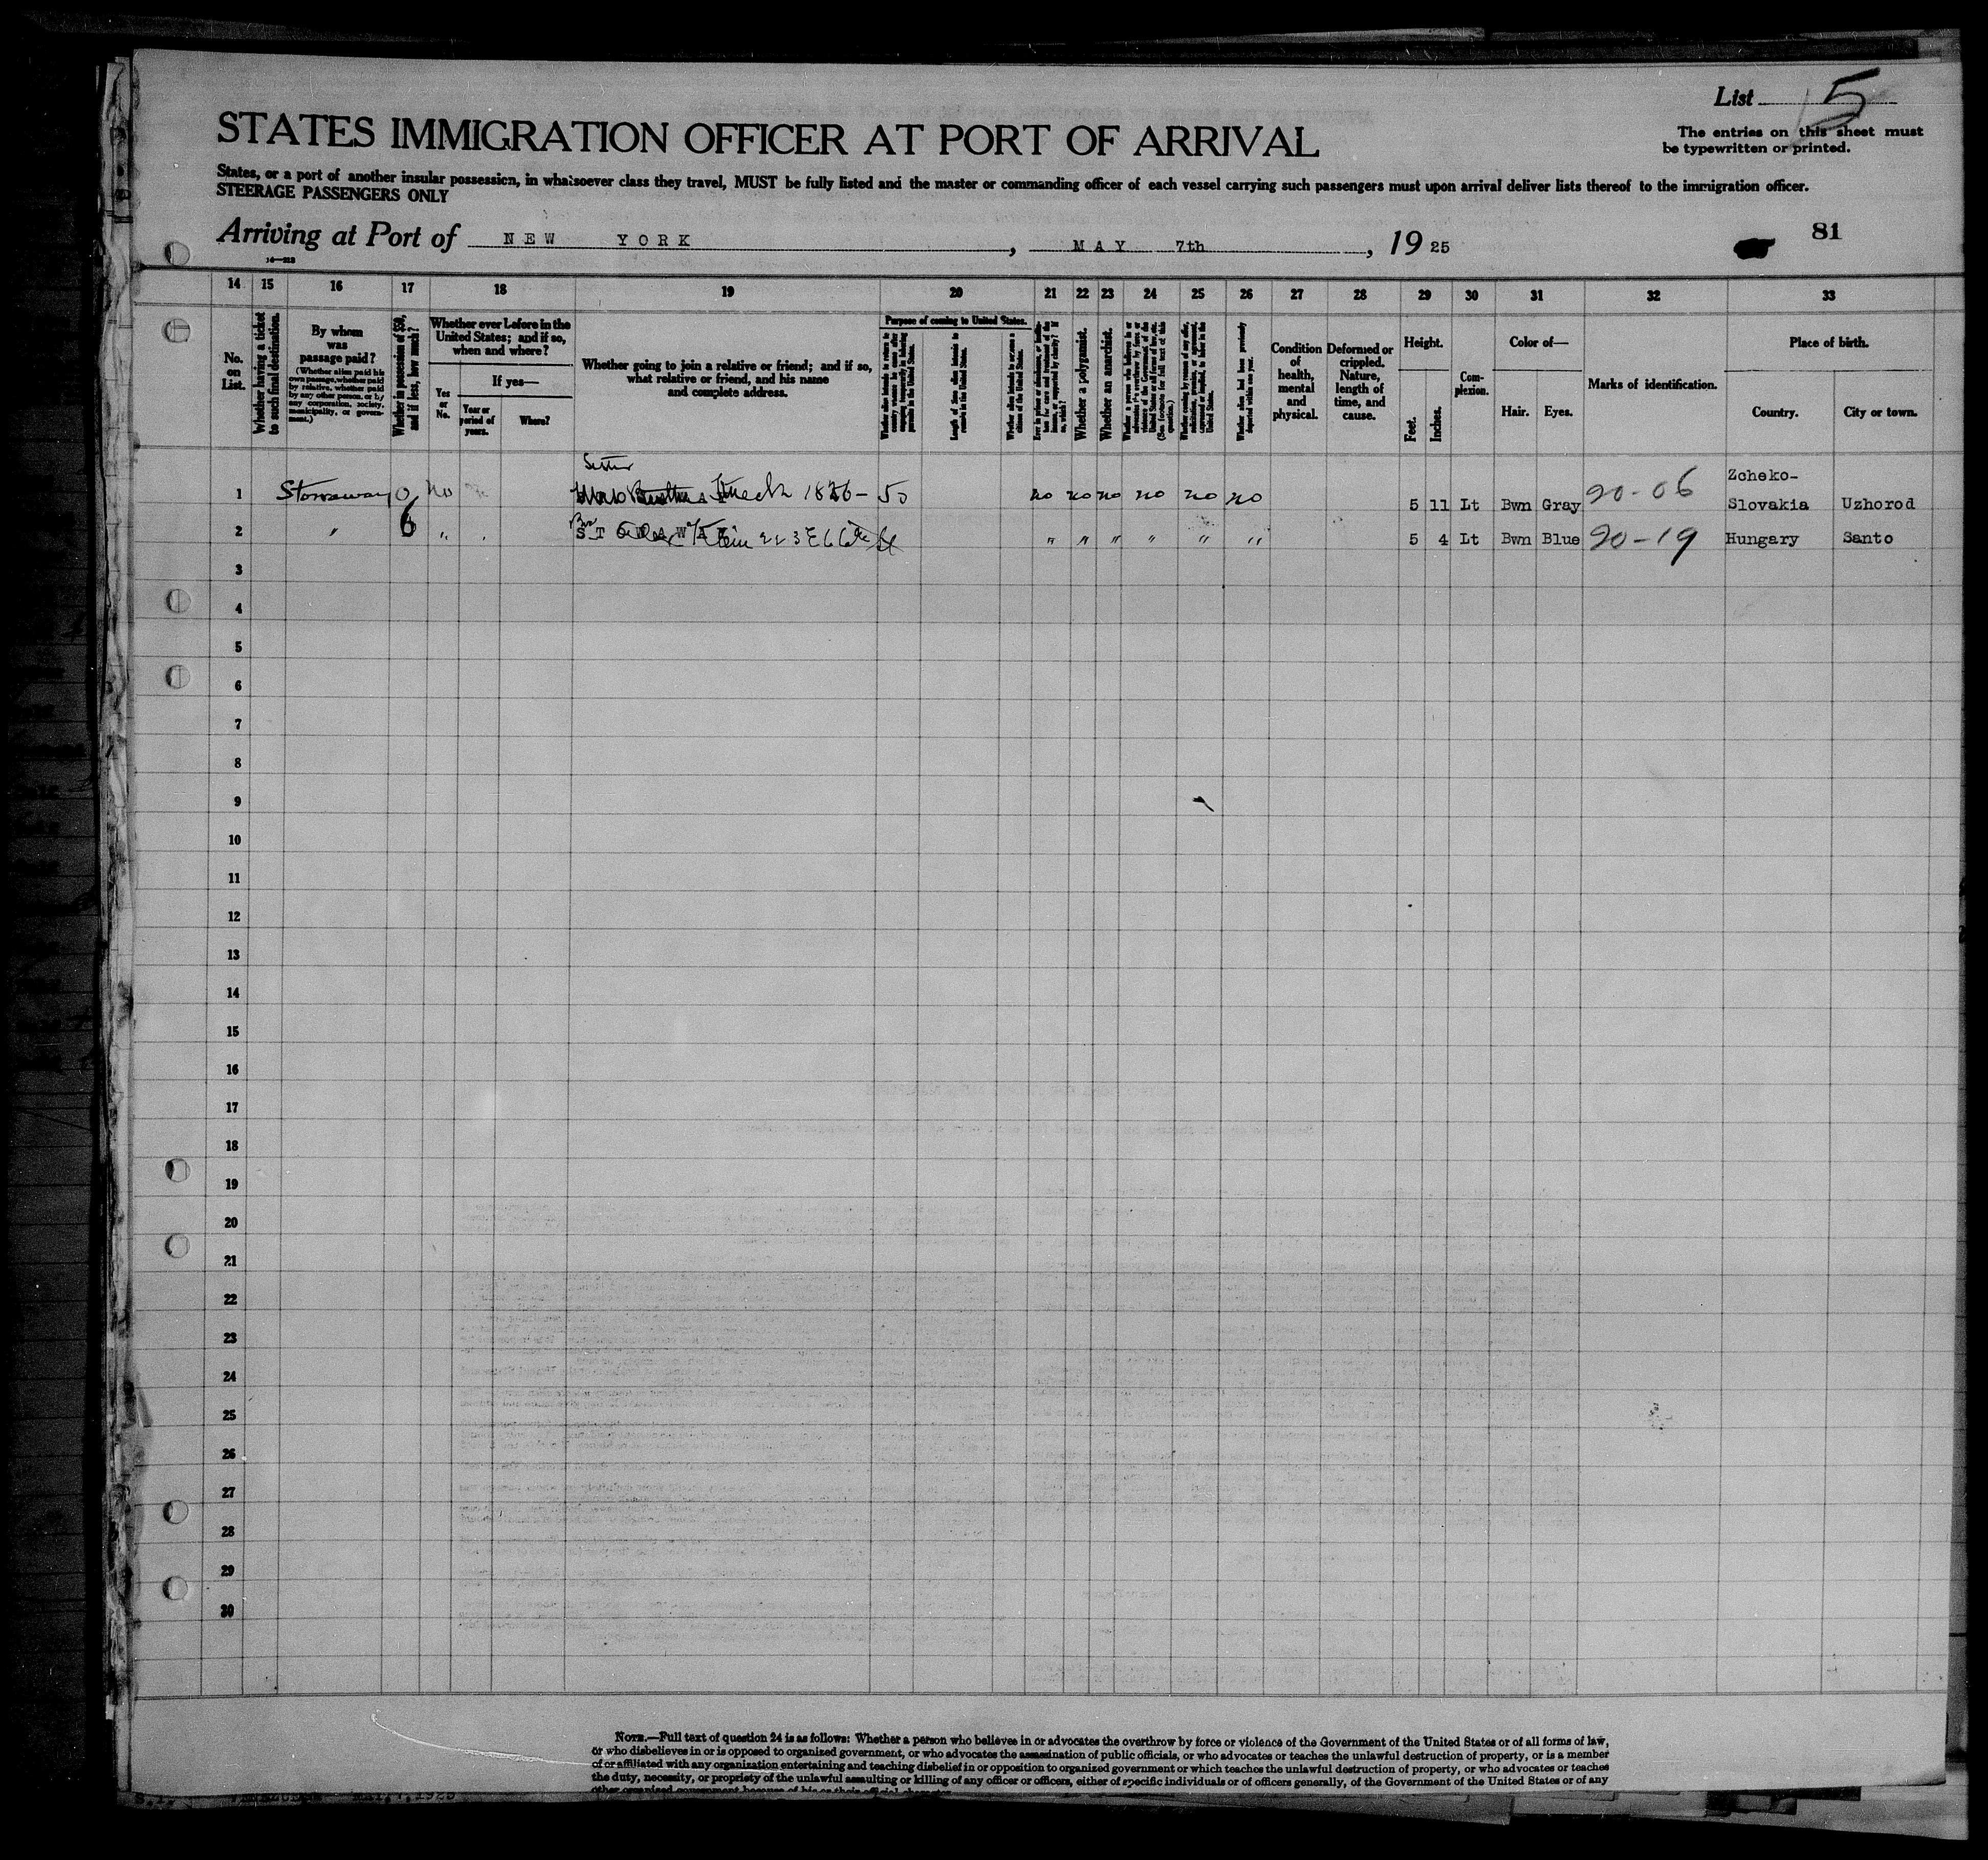 List 5
The entries on this sheet must
be typewritten or printed.
STATES IMMIGRATION OFFICER AT PORT OF ARRIVAL
States, or a port of another insular possession, in whatsoever class they travel, MUST be fully listed and the master or commanding officer of each vessel carrying such passengers must upon arrival deliver lists thereof to the immigration officer.
STEERAGE PASSENGERS ONLY
Arriving at Port of NEW YORK, MAY 7th, 1925
81
14 15 16 17 18 19 20 21 22 23 24 25 26 27 28 29 30 31 32 33
No. on List.
Whether having a ticket to such final destination.
By whom was passage paid?
(Whether alien paid his own passage, whether paid by relative, whether paid by any other person, or by any corporation, society, municipality, or government.)
Whether in possession of $50, and if less, how much?
Whether ever before in the United States; and if so, when and where?
Yes or No.
If yes—
Year or period of years.
Where?
Whether going to join a relative or friend; and if so, what relative or friend, and his name and complete address.
Purpose of coming to United States.
Whether a polygamist.
Whether an anarchist.
Condition of health, mental and physical.
Deformed or crippled. Nature, length of time, and cause.
Height.
Feet.
Inches.
Complexion.
Color of—
Hair.
Eyes.
Marks of identification.
Place of birth.
Country.
City or town.
Sister
1 Stowaway 0 no Mrs 50 no no no no no no 5 11 Lt Bwn Gray 20-06 Zcheko-Slovakia Uzhorod
2 " " STOWAWAY Klein 223 E 6 St " " " " " " 5 4 Lt Bwn Blue 20-19 Hungary Santo
3
4
5
6
7
8
9
10
11
12
13
14
15
16
17
18
19
20
21
22
23
24
25
26
27
28
29
30
NOTE.—Full text of question 24 is as follows: Whether a person who believes in or advocates the overthrow by force or violence of the Government of the United States or of all forms of law,
or who disbelieves in or is opposed to organized government, or who advocates the assassination of public officials, or who advocates or teaches the unlawful destruction of property, or is a member
of or affiliated with any organization entertaining and teaching disbelief in or opposition to organized government or which teaches the unlawful destruction of property, or who advocates or teaches
the duty, necessity, or propriety of the unlawful assaulting or killing of any officer or officers, either of specific individuals or of officers generally, of the Government of the United States or of any
other organized government because of his or their official character.